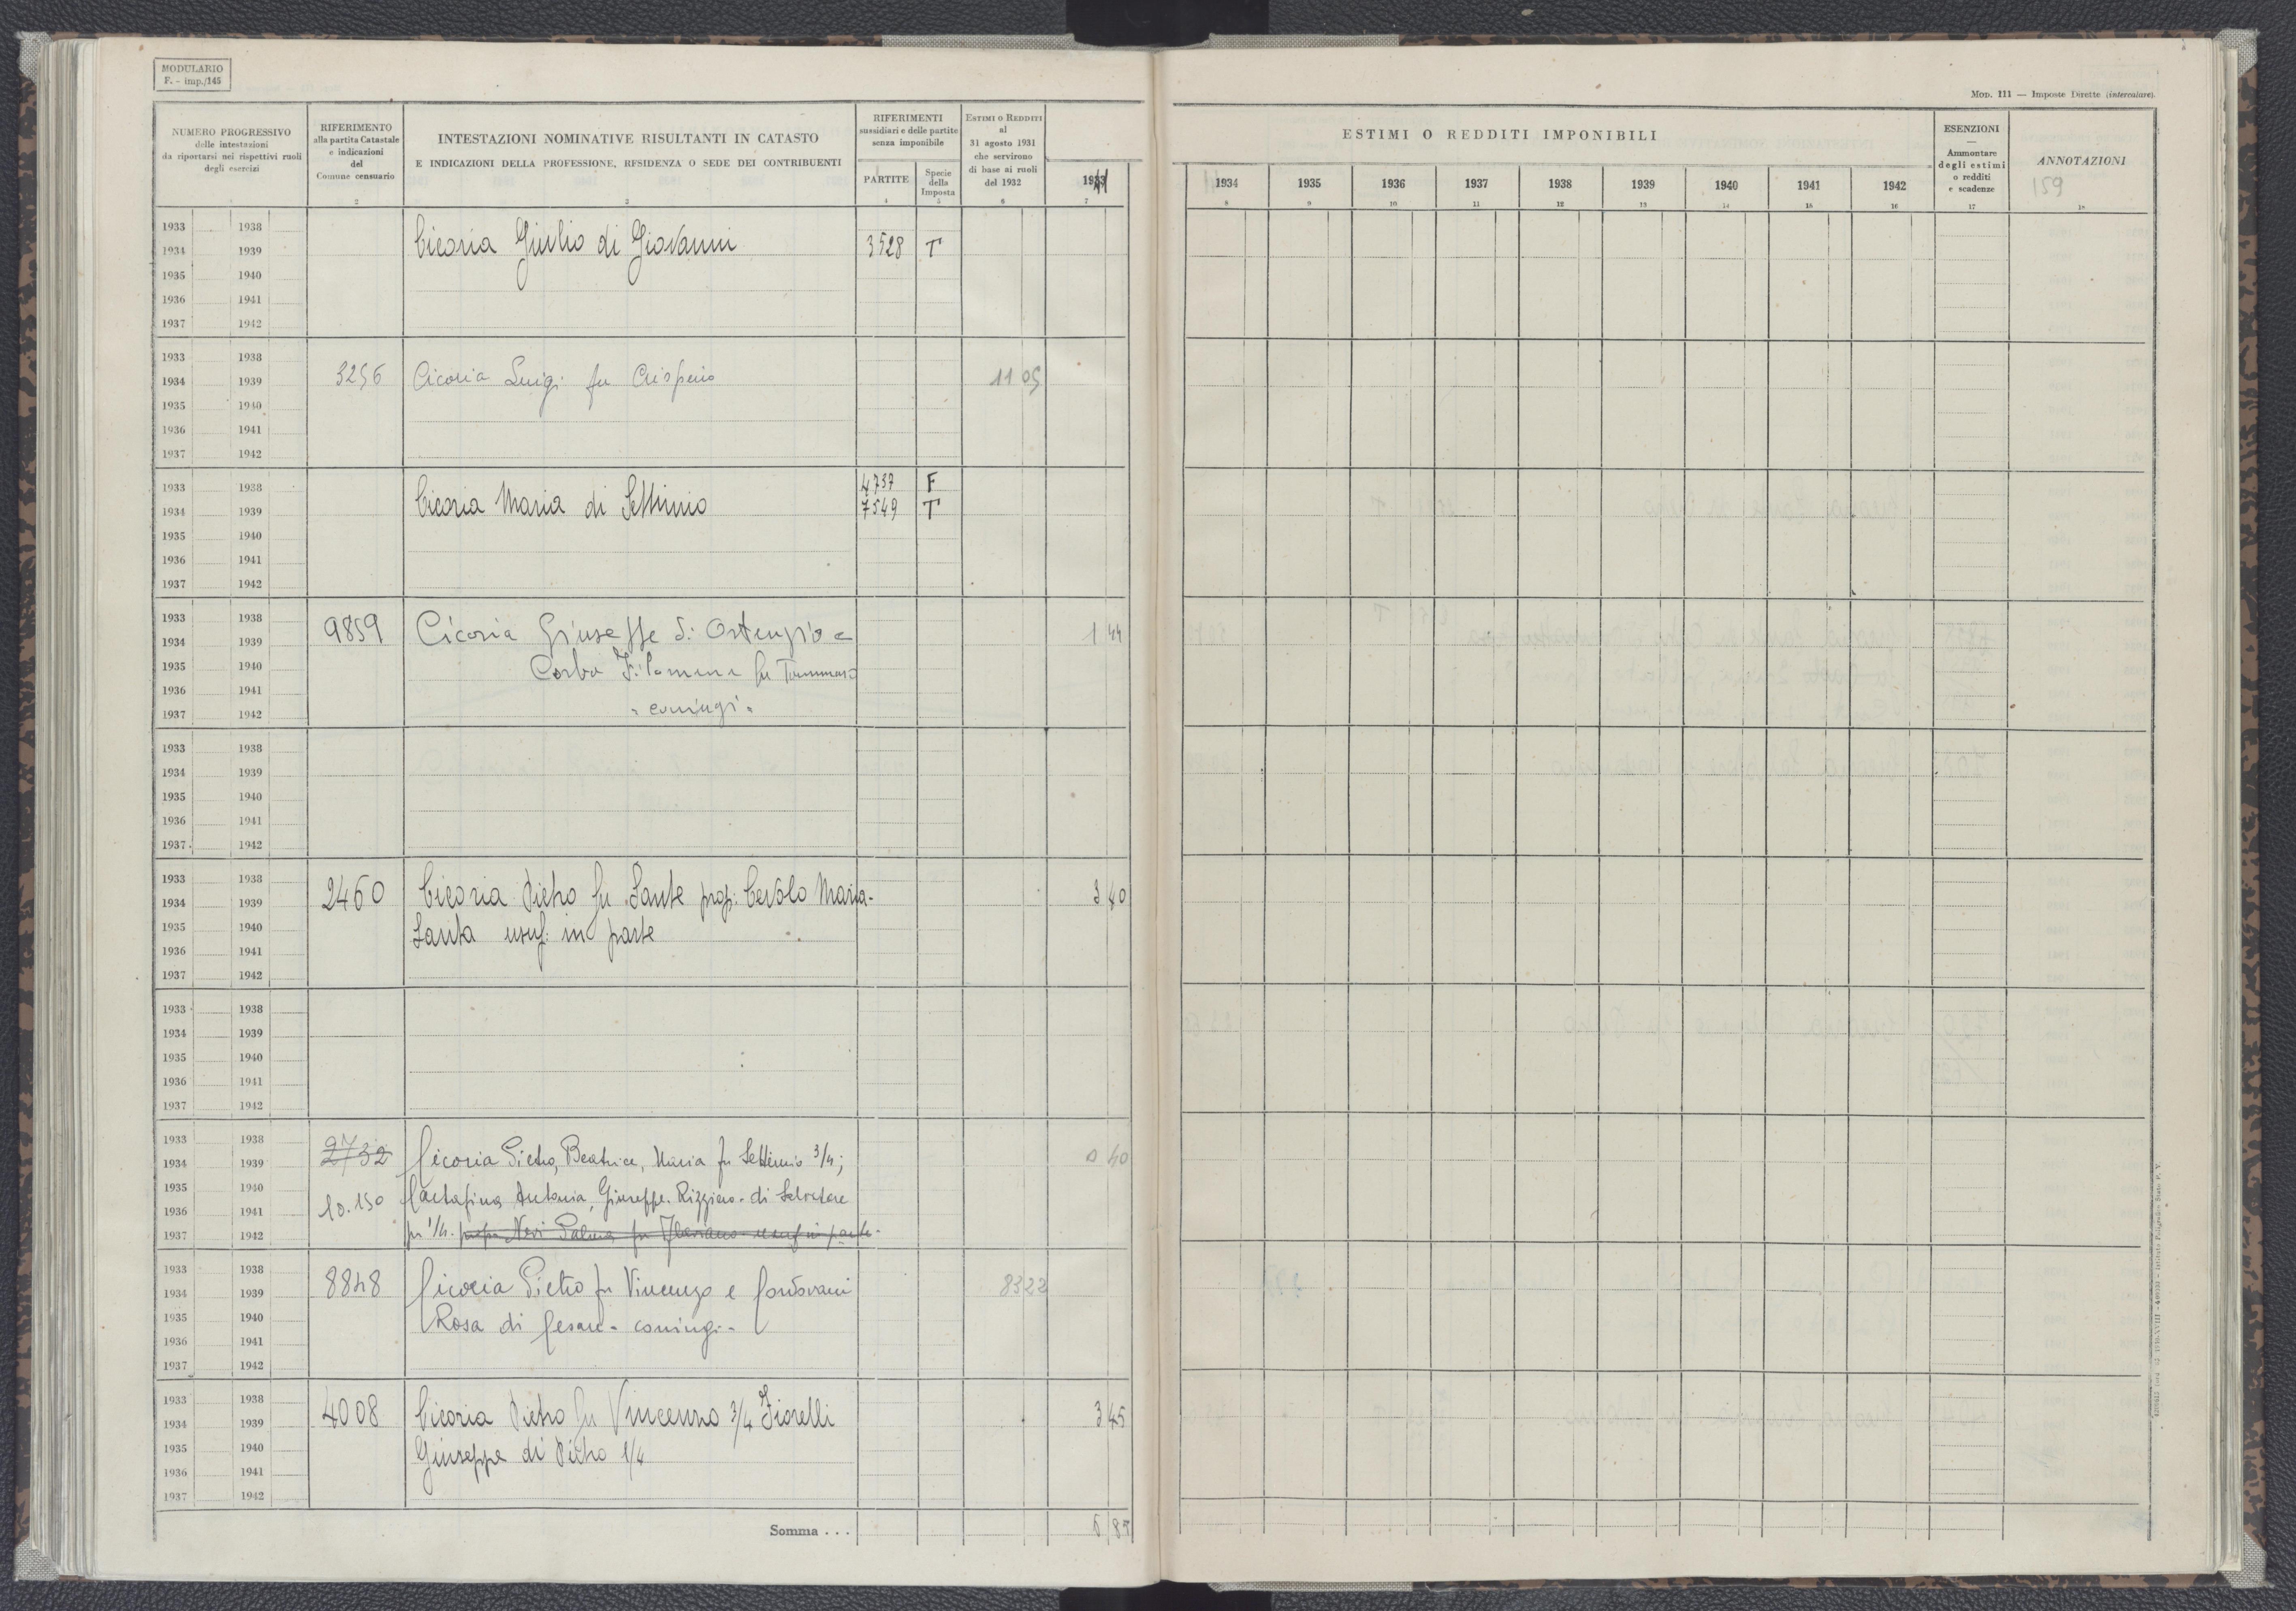 MODULARIO
F. - imp./145
NUMERO PROGRESSIVO
delle intestazioni
da riportarsi nei rispettivi ruoli
degli esercizi
RIFERIMENTO
alla partita Catastale
e indicazioni
del
Comune censuario
2
INTESTAZIONI NOMINATIVE RISULTANTI IN CATASTO
E INDICAZIONI DELLA PROFESSIONE, RESIDENZA O SEDE DEI CONTRIBUENTI
3
RIFERIMENTI
sussidiari e delle partite
senza imponibile
PARTITE
4
Specie
della
Imposta
5
ESTIMI O REDDITI
al
31 agosto 1931
che servirono
di base ai ruoli
del 1932
6
7
MOD. 111 — Imposte Dirette (intercalare).
ESTIMI O REDDITI IMPONIBILI
1934 1935 1936 1937 1938 1939 1940 1941 1942
8 9 10 11 12 13 14 15 16
ESENZIONI
—
Ammontare
degli estimi
o redditi
e scadenze
17
ANNOTAZIONI
159
18
1933 1938
1934 1939 Cicoria Giulio di Giovanni 3528 T
1935 1940
1936 1941
1937 1942
1933 1938
1934 1939 3256 Cicoria Luigi fu Crispino 11 05
1935 1940
1936 1941
1937 1942
1933 1938 4737 F
1934 1939 Cicoria Maria di Settimio 7549 T
1935 1940
1936 1941
1937 1942
1933 1938
1934 1939 9859 Cicoria Giuseppe di Ortenzio e 1 44
1935 1940 Corbo Filomena fu Tommaso
1936 1941
1937 1942 - coniugi -
1933 1938
1934 1939
1935 1940
1936 1941
1937 1942
1933 1938
1934 1939 2460 Cicoria Pietro fu Sante prop: Cervolo Maria- 3 40
1935 1940 Santa usuf. in parte
1936 1941
1937 1942
1933 1938
1934 1939
1935 1940
1936 1941
1937 1942
1933 1938 2732
1934 1939 Cicoria Pietro, Beatrice, Maria fu Settimio 3/4; 0 40
1935 1940 10.150 Antonia, Giuseppe. di Salvatore
1936 1941
1937 1942 per 1/4. Nevi Palma fu Flaviano usuf in parte-
1933 1938
1934 1939 8848 Cicoria Pietro fu Vincenzo e 83 22
1935 1940 Rosa di Cesare - coniugi -
1936 1941
1937 1942
1933 1938
1934 1939 4008 Cicoria Pietro fu Vincenzo 3/4 Fiorelli 3 45
1935 1940 Giuseppe di Pietro 1/4
1936 1941
1937 1942
Somma . . .